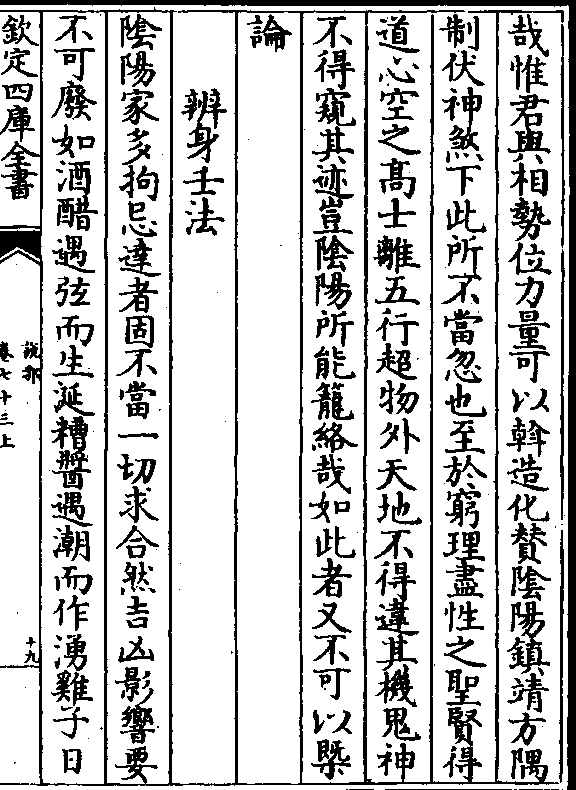 哉惟君與相勢位力量可以斡造化賛陰陽鎮靖方隅
制伏神煞下此所不當忽也至於窮理盡性之聖賢得
道心空之髙士離五行超物外天地不得違其機鬼神
不得窺其迹豈陰陽所能籠絡哉如此者又不可以槩
論
辨身壬法
陰陽家多拘忌達者固不當一切求合然吉凶影響要
不可廢如酒醋遇弦而生涎糟醬遇潮而作湧雞子日
欽定四庫全書
說郛
卷七十三上
十九